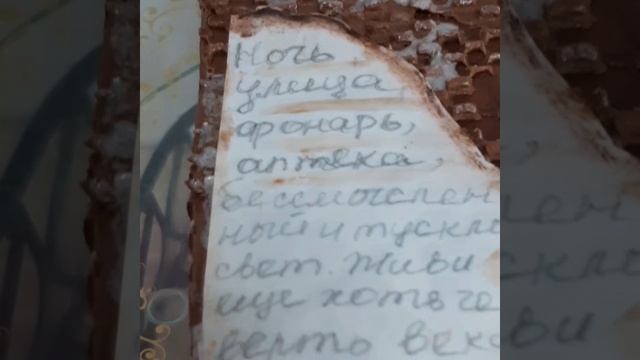 Ночь
улица,
фонарь,
аптека,
бессмыслен
ный и тускл
свет. Живи
еще хоть че
верть века